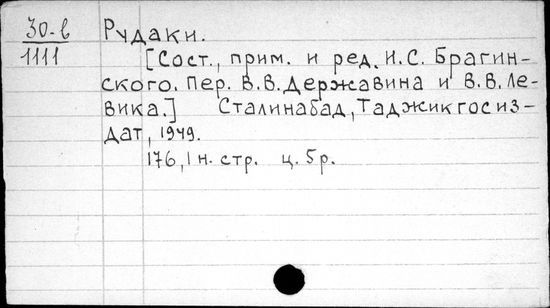 30-в
1111
Рудаки.
[Сост., прим. и ред. И.С. Брагин-
ского. Пер. В.В. Державина и В.В. Ле-
вика.] Сталинабад, Таджикгосиз-
дат, 1949.
176, 1 н. стр. ц. 5 р.